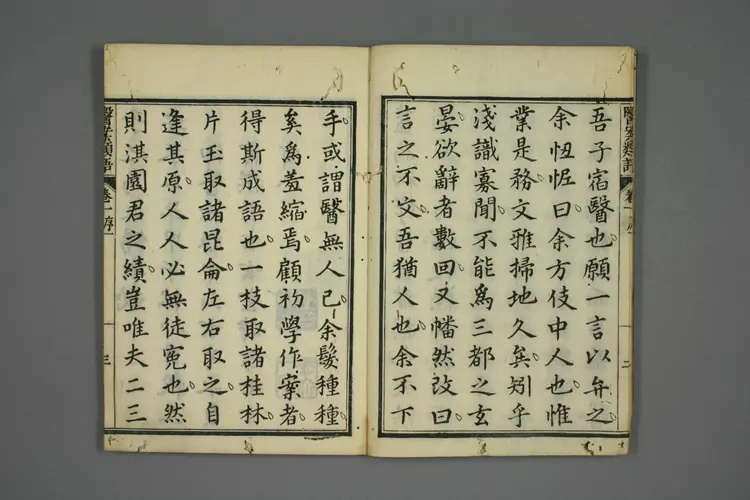 醫案類語 卷一序 二
吾子宿醫也願一言以弁之
余忸怩曰余方伎中人也惟
業是務文雅掃地久矣矧乎
淺識寡聞不能爲三都之玄
晏欲辭者數回又幡然改曰
言之不文吾猶人也余不下
手或謂醫無人已余髮種種
矣爲羞縮焉顧初學作案者
得斯成語也一枝取諸桂林
片玉取諸昆侖左右取之自
逢其原人人必無徒寃也然
則淇園君之績豈唯夫二三
醫案類語 卷一序 三